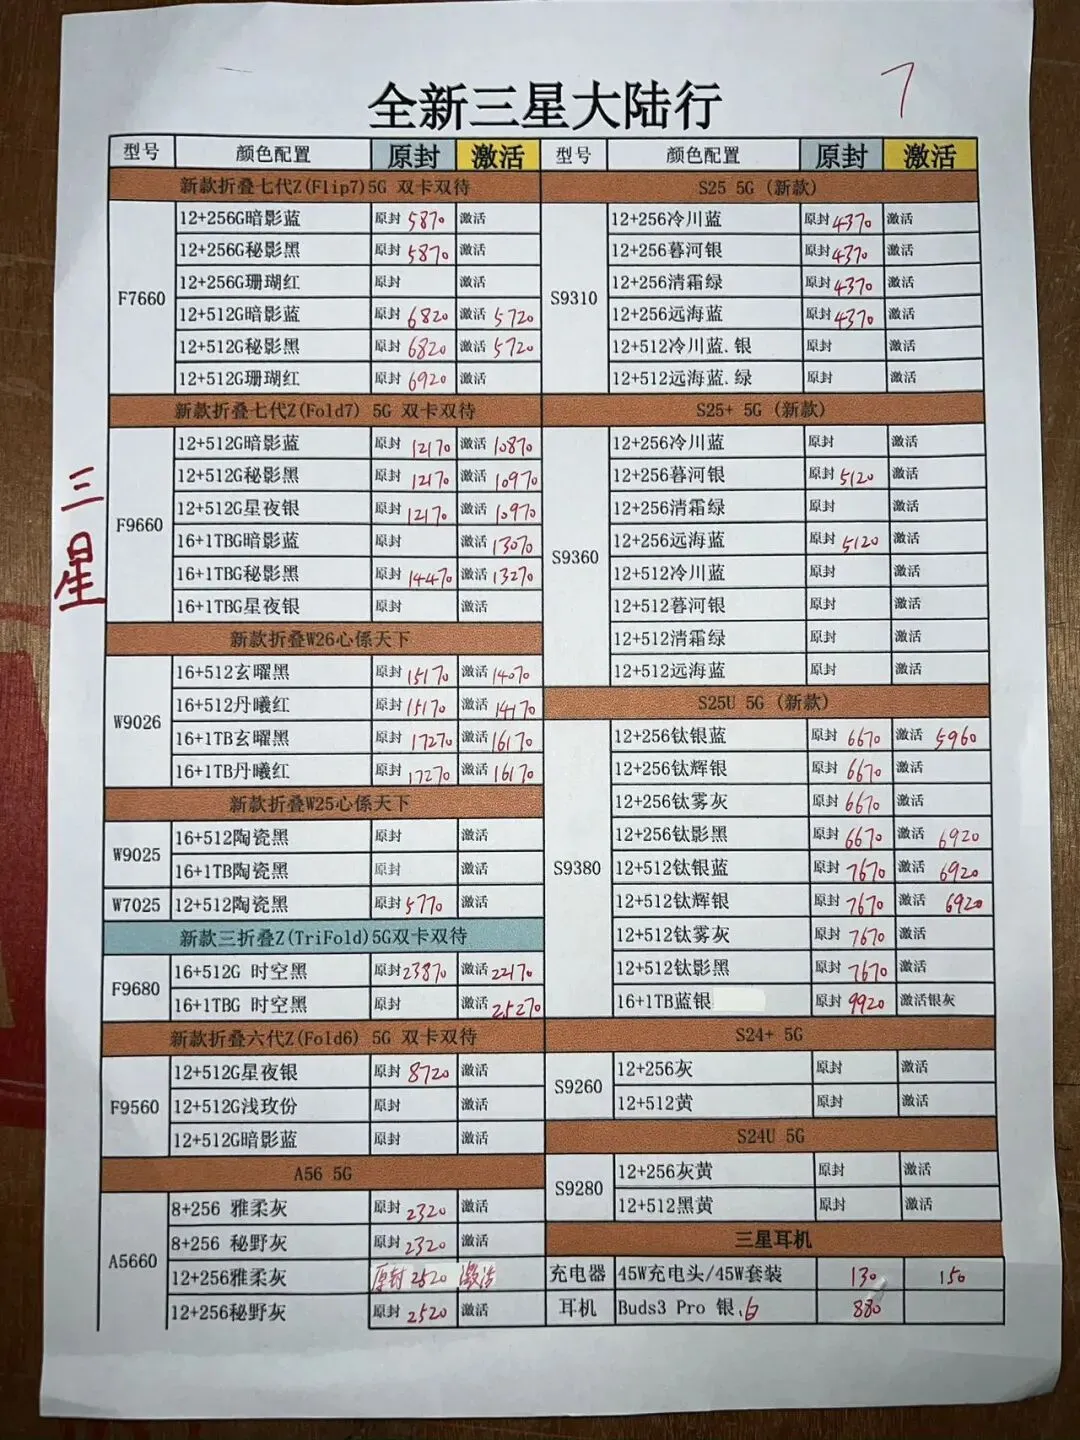 全新三星大陆行
7
三星
型号 颜色配置 原封 激活
新款折叠七代Z(Flip7)5G 双卡双待
F7660
12+256G暗影蓝 原封 5870 激活
12+256G秘影黑 原封 5870 激活
12+256G珊瑚红 原封 激活
12+512G暗影蓝 原封 6820 激活 5720
12+512G秘影黑 原封 6820 激活 5720
12+512G珊瑚红 原封 6920 激活
新款折叠七代Z(Fold7) 5G 双卡双待
F9660
12+512G暗影蓝 原封 12170 激活 10870
12+512G秘影黑 原封 12170 激活 10970
12+512G星夜银 原封 12170 激活 10970
16+1TBG暗影蓝 原封 激活 13070
16+1TBG秘影黑 原封 14470 激活 13270
16+1TBG星夜银 原封 激活
新款折叠W26心係天下
W9026
16+512玄曜黑 原封 15170 激活 14070
16+512丹曦红 原封 15170 激活 14170
16+1TB玄曜黑 原封 17270 激活 16170
16+1TB丹曦红 原封 17270 激活 16170
新款折叠W25心係天下
W9025
16+512陶瓷黑 原封 激活
16+1TB陶瓷黑 原封 激活
W7025 12+512陶瓷黑 原封 5770 激活
新款三折叠Z(TriFold)5G双卡双待
F9680
16+512G 时空黑 原封 23870 激活 22170
16+1TBG 时空黑 原封 激活 25270
新款折叠六代Z(Fold6) 5G 双卡双待
F9560
12+512G星夜银 原封 8720 激活
12+512G浅玫份 原封 激活
12+512G暗影蓝 原封 激活
A56 5G
A5660
8+256 雅柔灰 原封 2320 激活
8+256 秘野灰 原封 2320 激活
12+256雅柔灰 原封 2520 激活
12+256秘野灰 原封 2520 激活
型号 颜色配置 原封 激活
S25 5G (新款)
S9310
12+256冷川蓝 原封 4370 激活
12+256暮河银 原封 4370 激活
12+256清霜绿 原封 4370 激活
12+256远海蓝 原封 4370 激活
12+512冷川蓝.银 原封 激活
12+512远海蓝.绿 原封 激活
S25+ 5G (新款)
S9360
12+256冷川蓝 原封 激活
12+256暮河银 原封 5120 激活
12+256清霜绿 原封 激活
12+256远海蓝 原封 5120 激活
12+512冷川蓝 原封 激活
12+512暮河银 原封 激活
12+512清霜绿 原封 激活
12+512远海蓝 原封 激活
S25U 5G (新款)
S9380
12+256钛银蓝 原封 6670 激活 5960
12+256钛辉银 原封 6670 激活
12+256钛雾灰 原封 6670 激活
12+256钛影黑 原封 6670 激活 6920
12+512钛银蓝 原封 7670 激活 6920
12+512钛辉银 原封 7670 激活 6920
12+512钛雾灰 原封 7670 激活
12+512钛影黑 原封 7670 激活
16+1TB蓝银 原封 9920 激活银灰
S24+ 5G
S9260
12+256灰 原封 激活
12+512黄 原封 激活
S24U 5G
S9280
12+256灰黄 原封 激活
12+512黑黄 原封 激活
三星耳机
充电器 45W充电头/45W套装 130 150
耳机 Buds3 Pro 银.白 880